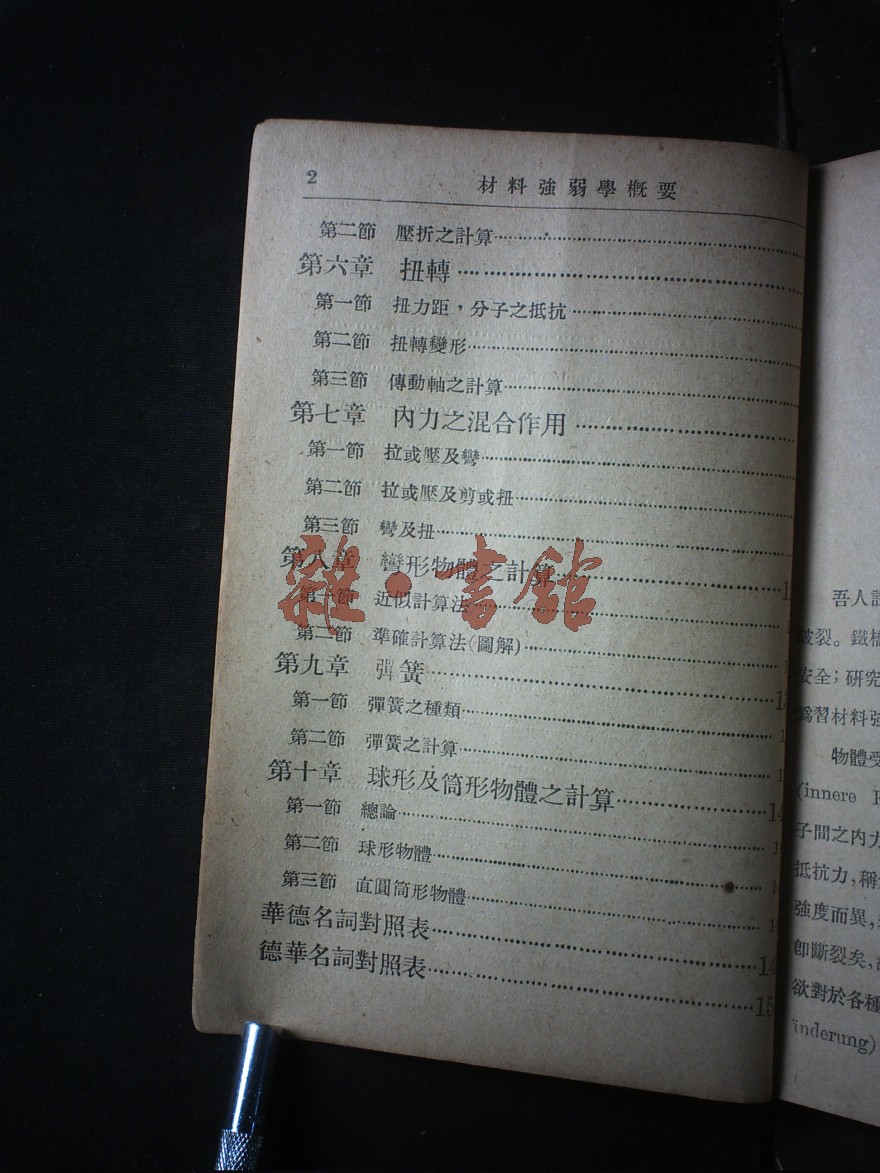 2 材料強弱學概要
第二節 壓折之計算
第六章 扭轉
第一節 扭力距，分子之抵抗
第二節 扭轉變形
第三節 傳動軸之計算
第七章 內力之混合作用
第一節 拉或壓及彎
第二節 拉或壓及剪或扭
第三節 彎及扭
第八章 彎形物體之計算
第一節 近似計算法
第二節 準確計算法(圖解)
第九章 彈簧
第一節 彈簧之種類
第二節 彈簧之計算
第十章 球形及筒形物體之計算
第一節 總論
第二節 球形物體
第三節 直圓筒形物體
華德名詞對照表
德華名詞對照表
雜·書館
吾人
破裂。鐵橋
安全；研究
爲習材料強
物體受
(innere
子間之內力
抵抗力，稱
強度而異，
卽斷裂矣，
欲對於各種
änderung)